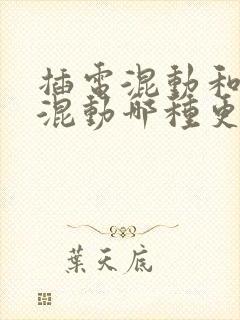 插電混動和
混動哪種更
葉天底